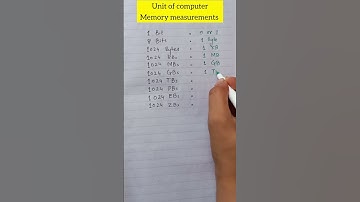 Unit of computer
Memory measurements
1 Bit = 0 or 1
8 Bits = 1 Byte
1024 Bytes = 1 KB
1024 KBs = 1 MB
1024 MBs = 1 GB
1024 GBs = 1 T
1024 TBs =
1024 PBs =
1024 EBs =
1024 ZBs =